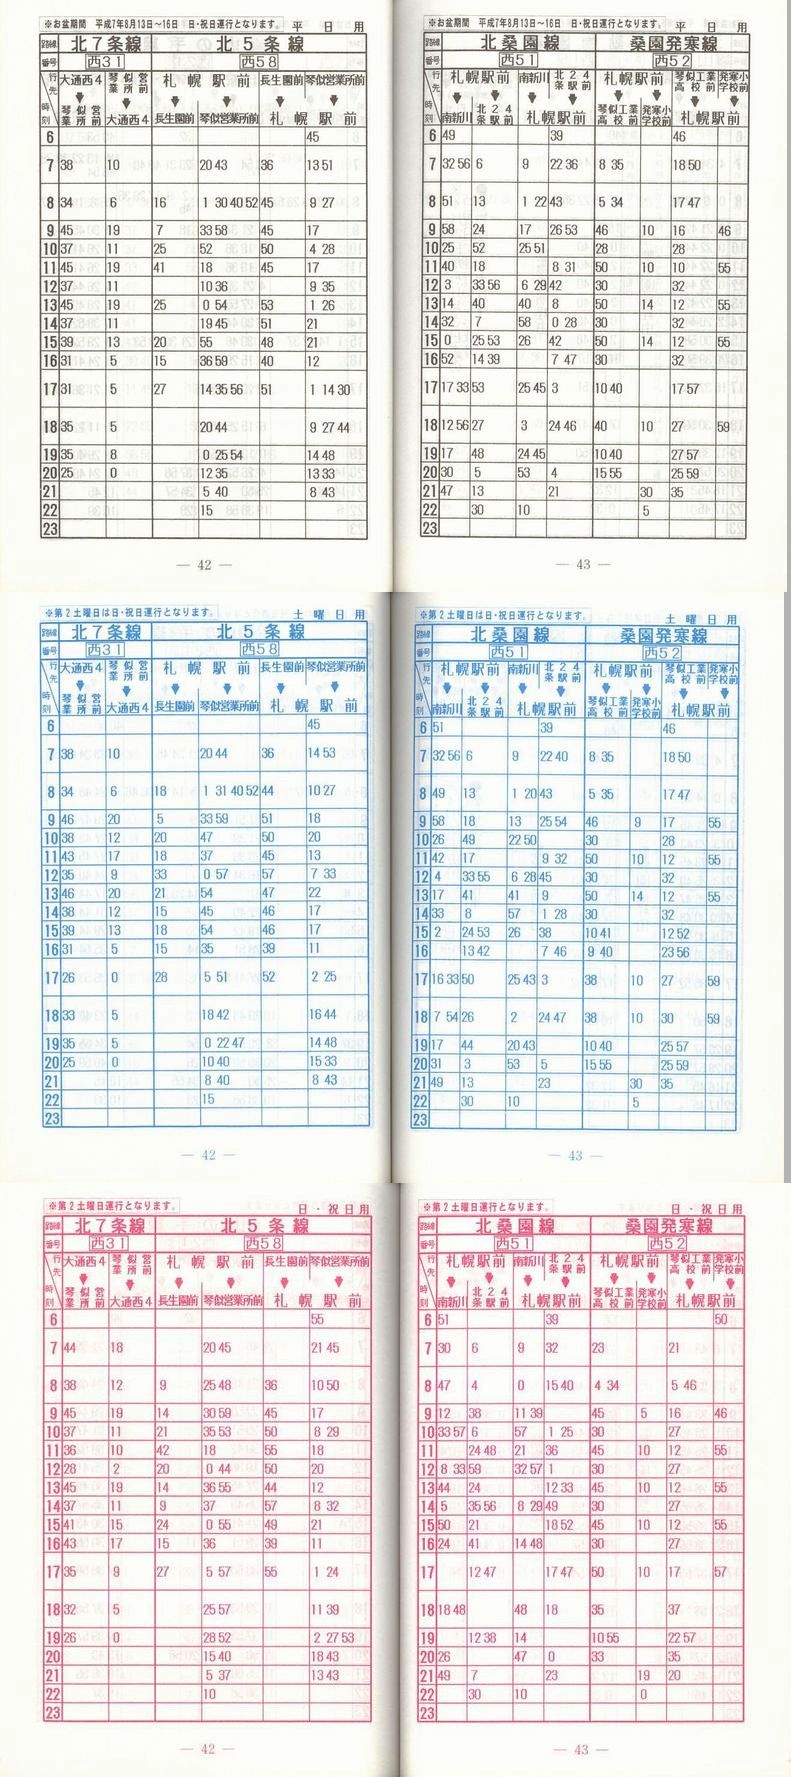 ※お盆期間 平成7年8月13日～16日 日・祝日運行となります。 平 日 用
路線 北7条線 北5条線
番号 西31 西58
行先 大通西4 琴似営業所前 札幌駅前 長生園前 琴似営業所前
時刻 琴似営業所前 大通西4 長生園前 琴似営業所前 札幌駅前
6 45
7 38 10 20 43 36 13 51
8 34 6 16 1 30 40 52 45 9 27
9 45 19 7 33 58 45 17
10 37 11 25 52 50 4 28
11 45 19 41 18 45 17
12 37 11 10 36 9 35
13 45 19 25 0 54 53 1 26
14 37 11 19 45 51 21
15 39 13 20 55 48 21
16 31 5 15 36 59 40 12
17 31 5 27 14 35 56 51 1 14 30
18 35 5 20 44 9 27 44
19 35 8 0 25 54 14 48
20 25 0 12 35 13 33
21 5 40 8 43
22 15
23
― 42 ―
※お盆期間 平成7年8月13日～16日 日・祝日運行となります。 平 日 用
路線 北桑園線 桑園発寒線
番号 西51 西52
行先 札幌駅前 南新川 北24条駅前 札幌駅前 琴似工業高校前 発寒小学校前
時刻 南新川 北24条駅前 札幌駅前 琴似工業高校前 発寒小学校前 札幌駅前
6 49 39 46
7 32 56 6 9 22 36 8 35 18 50
8 51 13 1 22 43 5 34 17 47
9 58 24 17 26 53 46 10 16 46
10 25 52 25 51 28 28
11 40 18 8 31 50 10 10 55
12 3 33 56 6 29 42 30 32
13 14 40 40 8 50 14 12 55
14 32 7 58 0 28 30 32
15 0 25 53 26 42 50 14 12 55
16 52 14 39 7 47 30 32
17 17 33 53 25 45 3 10 40 17 57
18 12 56 27 3 24 46 40 10 27 59
19 17 48 24 45 10 40 27 57
20 30 5 53 4 15 55 25 59
21 47 13 21 30 35
22 30 10 5
23
― 43 ―
※第2土曜日は日・祝日運行となります。 土 曜 日 用
路線 北7条線 北5条線
番号 西31 西58
行先 大通西4 琴似営業所前 札幌駅前 長生園前 琴似営業所前
時刻 琴似営業所前 大通西4 長生園前 琴似営業所前 札幌駅前
6 45
7 38 10 20 44 36 14 53
8 34 6 18 1 31 40 52 44 10 27
9 46 20 5 33 59 51 18
10 38 12 20 47 50 20
11 43 17 18 37 45 13
12 35 9 33 0 57 57 7 33
13 46 20 21 54 47 22
14 38 12 15 45 46 17
15 39 13 18 54 46 17
16 31 5 15 35 39 11
17 26 0 28 5 51 52 2 25
18 33 5 18 42 16 44
19 35 5 0 22 47 14 48
20 25 0 10 40 15 33
21 8 40 8 43
22 15
23
― 42 ―
※第2土曜日は日・祝日運行となります。 土 曜 日 用
路線 北桑園線 桑園発寒線
番号 西51 西52
行先 札幌駅前 南新川 北24条駅前 札幌駅前 琴似工業高校前 発寒小学校前
時刻 南新川 北24条駅前 札幌駅前 琴似工業高校前 発寒小学校前 札幌駅前
6 51 39 46
7 32 56 6 9 22 40 8 35 18 50
8 49 13 1 20 43 5 35 17 47
9 58 18 13 25 54 46 9 17 55
10 26 49 22 50 30 28
11 42 17 9 32 50 10 12 55
12 4 33 55 6 28 45 30 32
13 17 41 41 9 50 14 12 55
14 33 8 57 1 28 30 32
15 2 24 53 26 38 10 41 12 52
16 13 42 7 46 9 40 23 56
17 16 33 50 25 43 3 38 10 27 59
18 7 54 26 2 24 47 38 10 30 59
19 17 44 20 43 10 40 25 57
20 31 3 53 5 15 55 25 59
21 49 13 23 30 35
22 30 10 5
23
― 43 ―
※第2土曜日運行となります。 日・祝日用
路線 北7条線 北5条線
番号 西31 西58
行先 大通西4 琴似営業所前 札幌駅前 長生園前 琴似営業所前
時刻 琴似営業所前 大通西4 長生園前 琴似営業所前 札幌駅前
6 55
7 44 18 20 45 21 45
8 38 12 9 25 48 36 10 50
9 45 19 14 30 59 45 17
10 37 11 21 35 53 50 8 29
11 36 10 42 18 55 18
12 28 2 20 0 44 50 20
13 45 19 14 36 55 44 12
14 37 11 9 37 57 8 32
15 41 15 24 0 55 49 21
16 43 17 15 36 39 11
17 35 9 27 5 57 55 1 24
18 32 5 25 57 11 39
19 26 0 28 52 2 27 53
20 15 40 18 43
21 5 37 13 43
22 10
23
― 42 ―
※第2土曜日運行となります。 日・祝日用
路線 北桑園線 桑園発寒線
番号 西51 西52
行先 札幌駅前 南新川 北24条駅前 札幌駅前 琴似工業高校前 発寒小学校前
時刻 南新川 北24条駅前 札幌駅前 琴似工業高校前 発寒小学校前 札幌駅前
6 51 39 50
7 30 6 9 32 23 21
8 47 4 0 15 40 4 34 5 46
9 12 38 11 39 45 5 16 46
10 33 57 6 57 1 25 30 27
11 24 48 21 36 45 10 12 55
12 8 33 59 32 57 1 30 27
13 44 24 12 33 45 10 12 55
14 5 35 56 8 29 49 30 27
15 50 21 18 52 45 10 12 55
16 24 41 14 48 30 27
17 12 47 17 47 50 10 17 57
18 18 48 48 18 35 37
19 12 38 14 10 55 22 57
20 26 47 0 33 35
21 49 7 23 19 20
22 30 10 0
23
― 43 ―